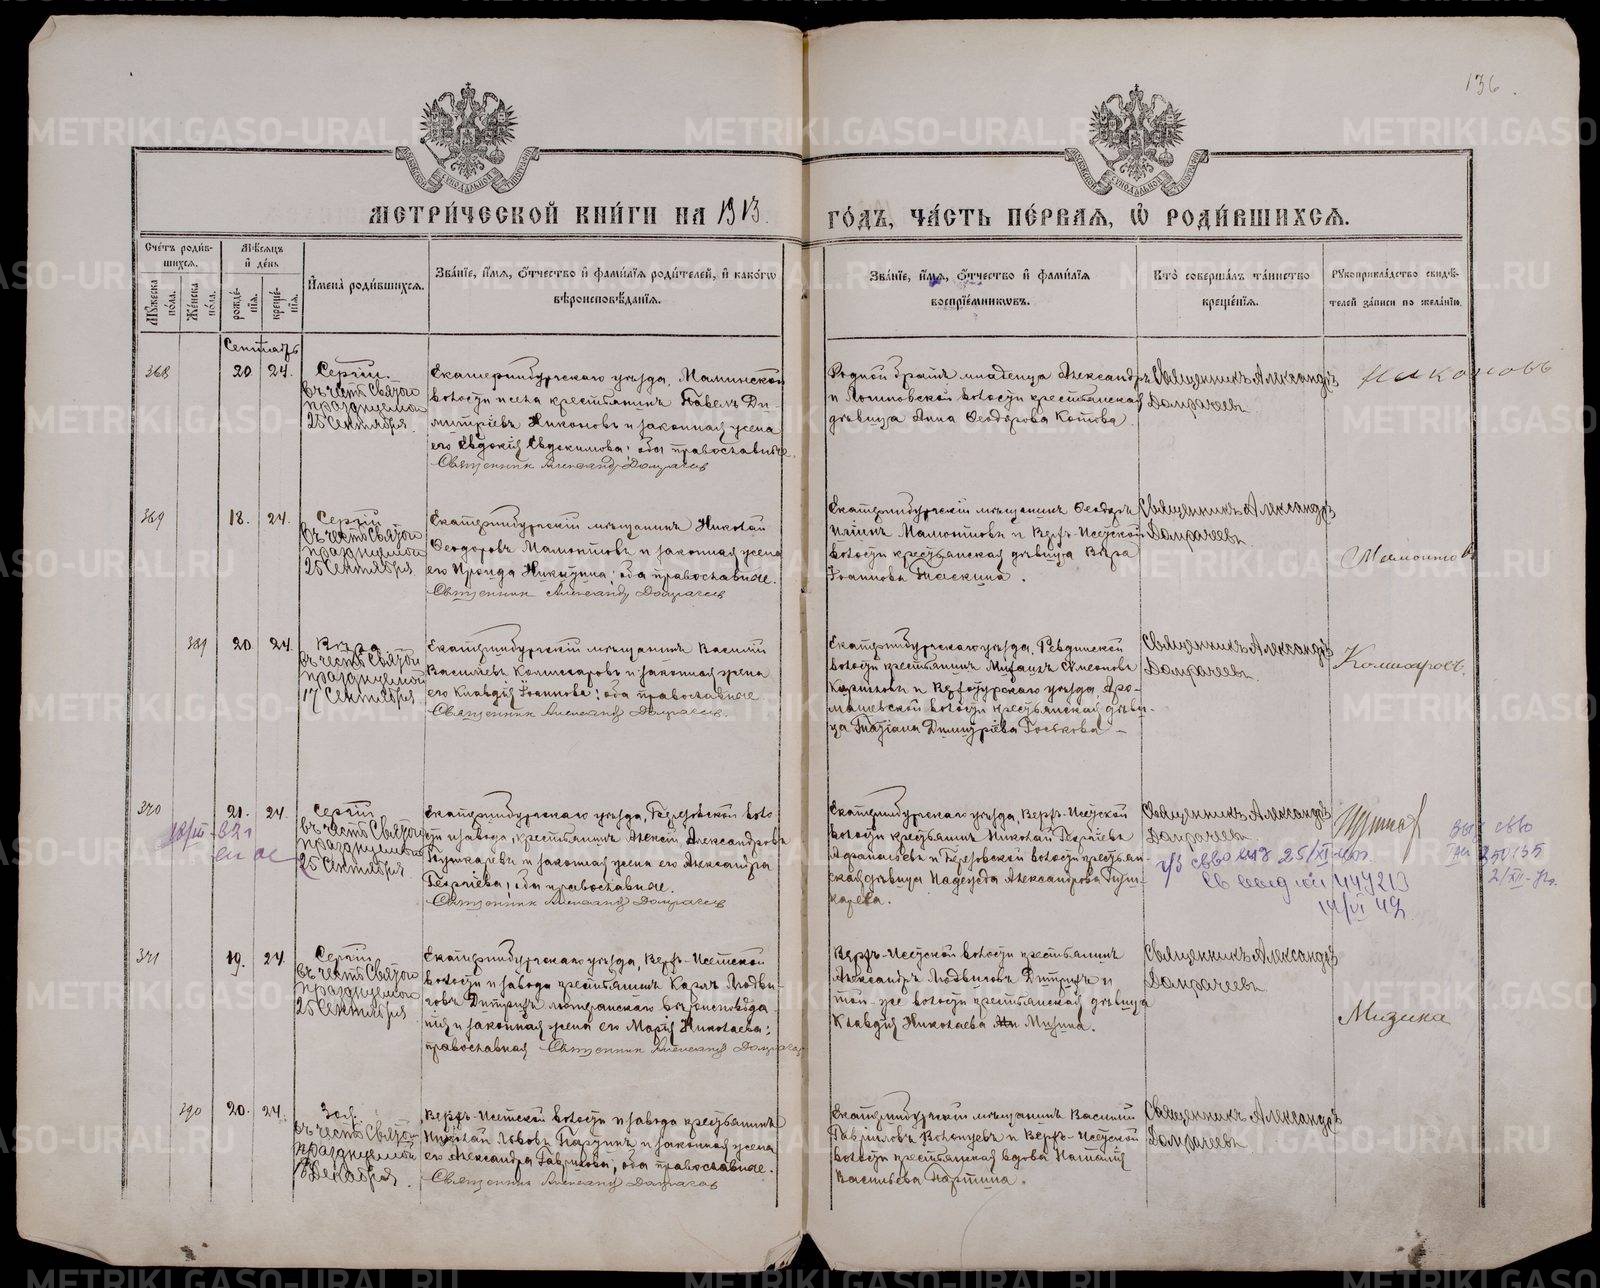 136.
МЕТРИ́ЧЕСКОЙ КНИ́ГИ НА 1913
ГО́ДЪ, ЧА́СТЬ ПЕ́РВАЯ, Ѡ РОДИ́ВШИХСЯ.
Сче́тъ роди́в-
шихся.
Мѣсяцъ
и де́нь
Мꙋжеска по́ла.
Же́нска по́ла.
рожде́-
нїя.
креще́-
нїя.
Имена̀ роди́вшихся.
Зва́нїе, и́мя, ѻ́тчество и фами́лїя роди́телей, и како́гѡ
вѣроисповѣ́данїя.
Зва́нїе, и́мя, ѻ́тчество и фами́лїя
воспрїе́мниковъ.
Кто̀ соверша́лъ та́инство
креще́нїя.
Рꙋкоприкла́дство свидѣ́-
телей за́писи по жела́нїю.
Сентябрь
368
20 24.
Сергій
въ честь Святого
празднуемого
25 Сентября.
Екатеринбургскаго уѣзда, Маминской
волости и села крестьянинъ Павелъ Ди-
митріевъ Никоновъ и законная жена
его Евдокія Евдокимова; оба православные.
Священник Александр Домрачев
Родной братъ младенца Александръ
и Логиновской волости крестьянская
дѣвица Анна Феодорова Котова.
Священникъ Александръ
Домрачевъ
Никоновъ
369
18. 24.
Сергій
въ честь Святого
празднуемого
25 Сентября
Екатеринбургскій мѣщанинъ Николай
Феодоровъ Мамонтовъ и законная жена
его Ираида Никитина; оба православные.
Священник Александр Домрачев
Екатеринбургскій мѣщанинъ Феодоръ
Мамонтовъ и Верх-Исетской
волости крестьянская дѣвица Вѣра
Іоаннова Таскина.
Священникъ Александръ
Домрачевъ
Мамонтовъ
389
20 24.
Вѣра
въ честь Святой
празднуемой
17 Сентября
Екатеринбургскій мѣщанинъ Василій
Васильевъ Комиссаровъ и законная жена
его Клавдія Іоаннова; оба православные
Священник Александр Домрачев.
Екатеринбургскаго уѣзда, Ревдинской
волости крестьянинъ Михаилъ Симеоновъ
и Верхотурскаго уѣзда, Аро-
машевской волости крестьянская дѣви-
ца Татіана Димитріева Госькова
Священникъ Александръ
Домрачевъ.
Комисаровъ.
370
21. 24.
Сергій
въ честь Святого
празднуемого
25 Сентября.
Екатеринбургскаго уѣзда, Березовской воло-
сти и завода, крестьянинъ Алексій Александровъ
Пушкаревъ и законная жена его Александра
Георгіева; оба православные.
Священник Александр Домрачев
Екатеринбургскаго уѣзда, Верх-Исетской
волости крестьянинъ Николай Георгіевъ
и Березовской волости крестьян-
ская дѣвица Надежда Александрова Пуш-
карева.
Священникъ Александръ
Домрачевъ.
371
19. 24
Сергій
въ честь Святого
празднуемого
25 Сентября
Екатеринбургскаго уѣзда, Верх-Исетской
волости и завода крестьянинъ Карлъ Людви-
говъ Дитрихъ лютеранскаго вѣроисповѣда-
нія и законная жена его Марія Николаева;
православная Священник Александр Домрачев
Верхъ-Исетской волости крестьянинъ
Александръ Людвиговъ Дитрихъ и
той-же волости крестьянская дѣвица
Клавдія Николаева Мизина.
Священникъ Александръ
Домрачевъ
Мизина
390
20. 24.
Зоя
въ честь Святой
празднуемой
18 Декабря.
Верхъ-Исетской волости и завода крестьянинъ
Николай Львовъ Паршинъ и законная жена
его Александра Гаврилова; оба православные.
Священник Александр Домрачев
Екатеринбургскій мѣщанинъ Василій
Гавриловъ и Верхъ-Исетской
волости крестьянская вдова Наталія
Васильева Паршина.
Священникъ Александръ
Домрачевъ